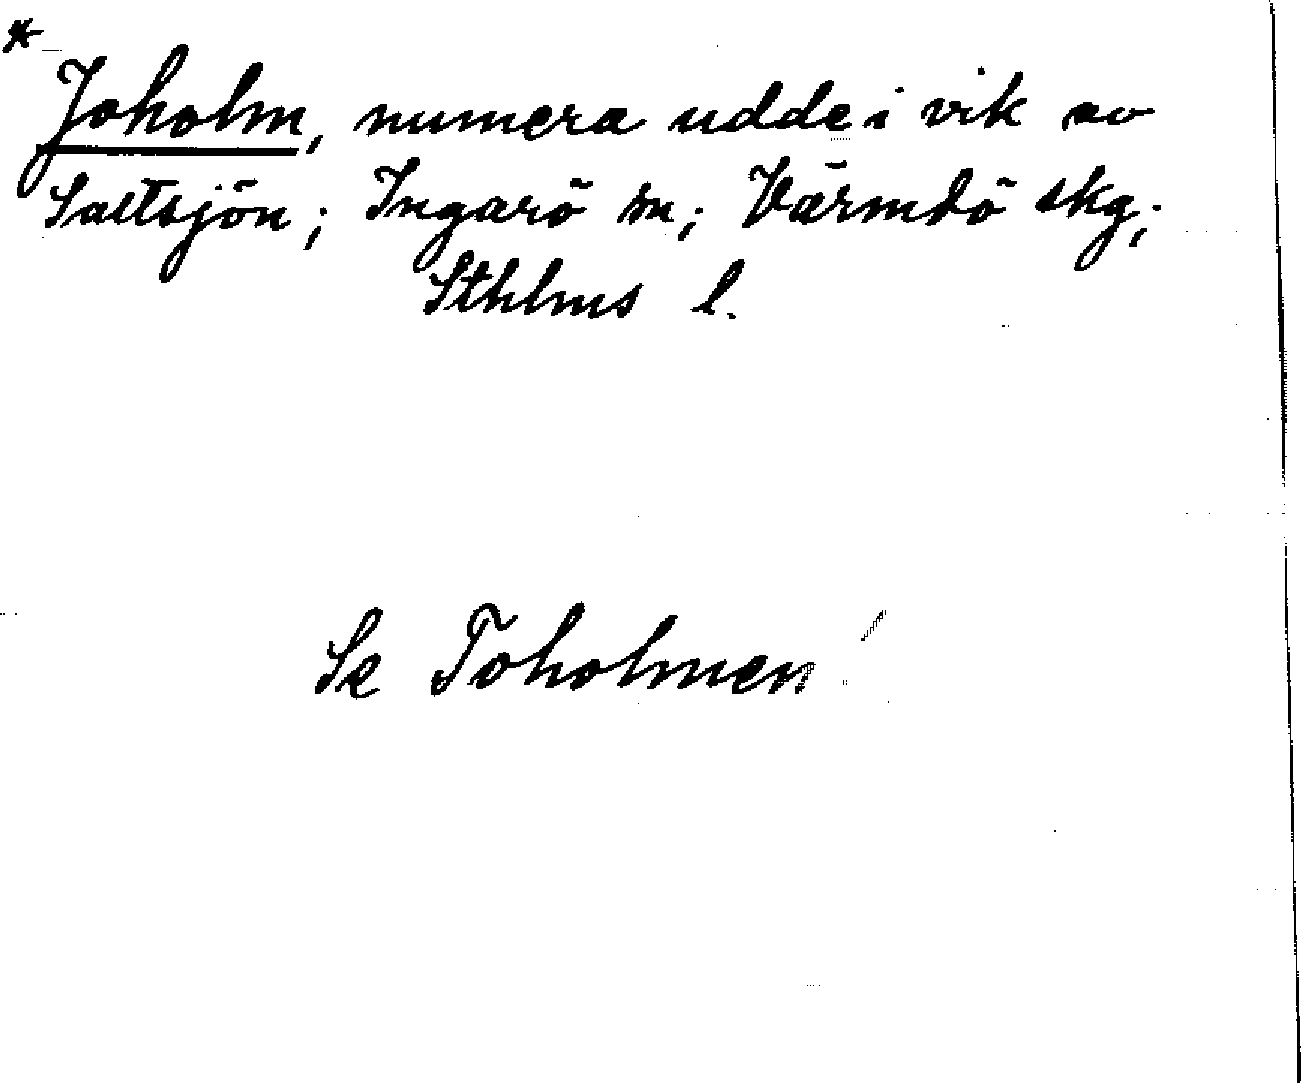 *
Joholm, numera udde i vik av
Saltsjön; Ingarö sn; Värmdö skg;
Sthlms l.
Se Toholmen!